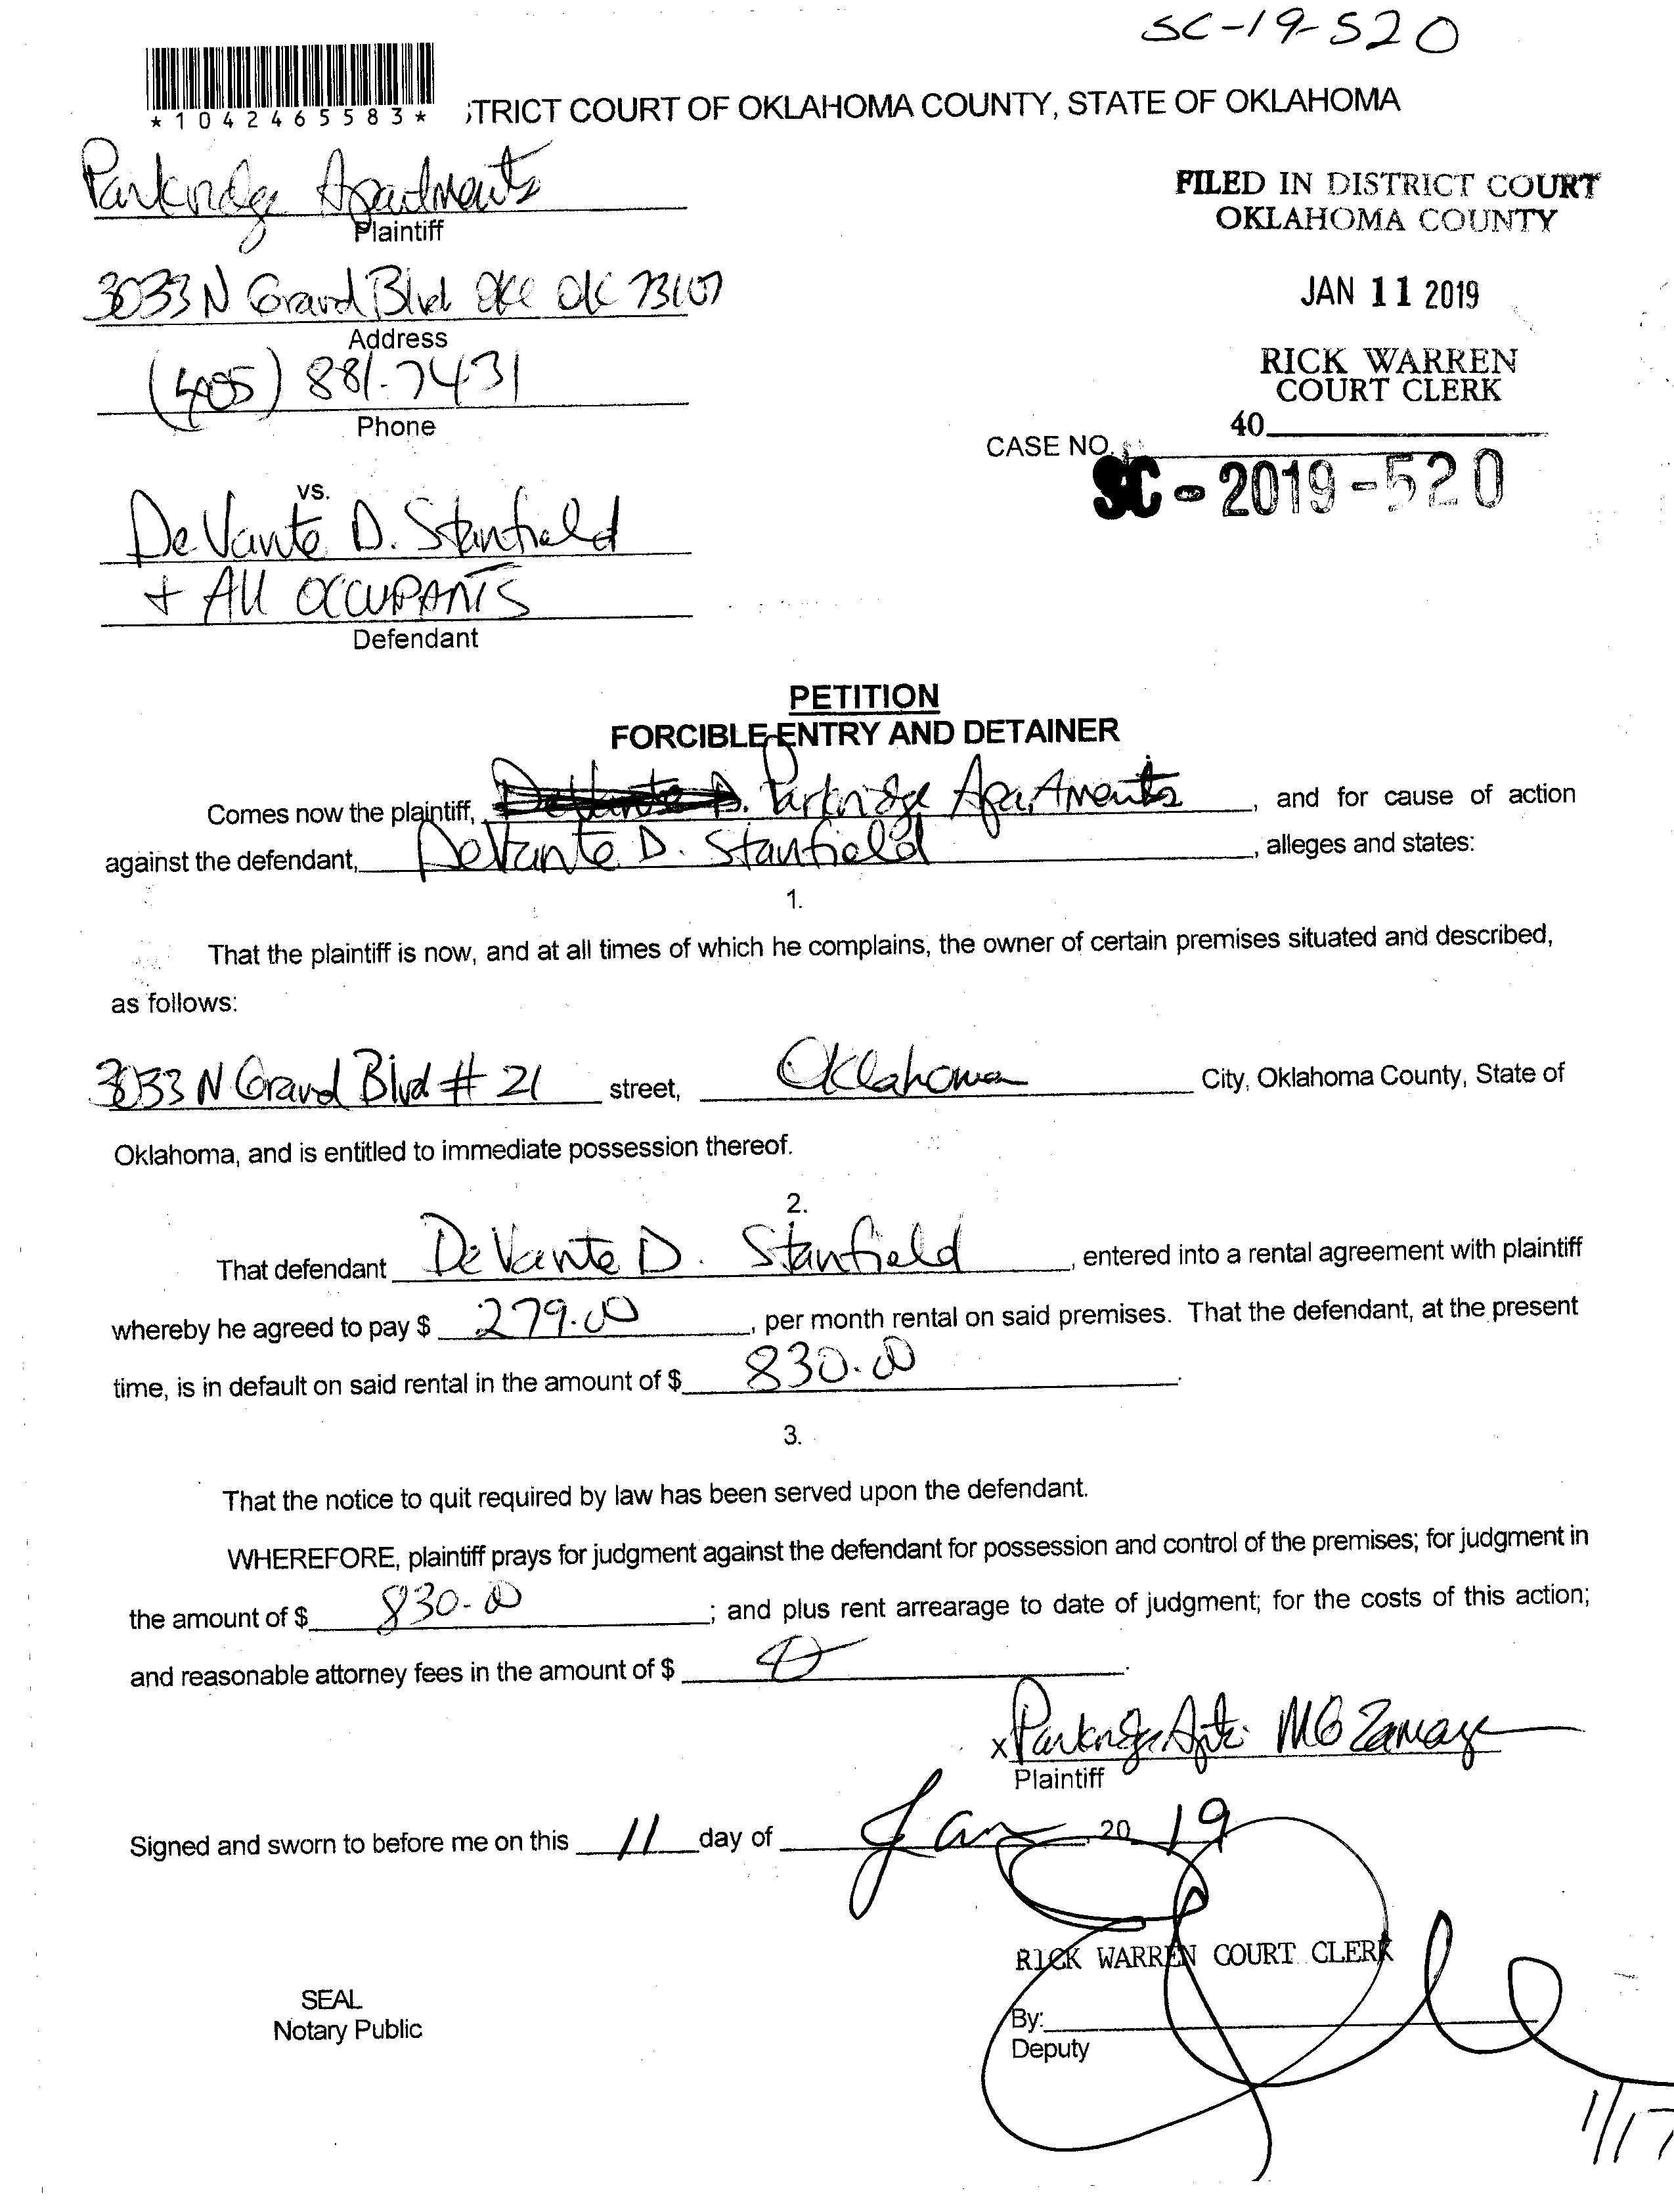 SC-19-520
*1042465583*
;TRICT COURT OF OKLAHOMA COUNTY, STATE OF OKLAHOMA
Parkridge Apartments
Plaintiff
FILED IN DISTRICT COURT
OKLAHOMA COUNTY
3033 N Grand Blvd OKC OK 73107
Address
JAN 11 2019
(405) 881-7431
Phone
RICK WARREN
COURT CLERK
40
CASE NO.
SC-2019-520
vs.
DeVante D. Stanfield
+ All OCCUPANTS
Defendant
PETITION
FORCIBLE ENTRY AND DETAINER
Comes now the plaintiff, Parkridge Apartments, and for cause of action
against the defendant, DeVante D. Stanfield, alleges and states:
1.
That the plaintiff is now, and at all times of which he complains, the owner of certain premises situated and described,
as follows:
3033 N Grand Blvd # 21 street, Oklahoma City, Oklahoma County, State of
Oklahoma, and is entitled to immediate possession thereof.
2.
That defendant DeVante D. Stanfield, entered into a rental agreement with plaintiff
whereby he agreed to pay $ 279.00, per month rental on said premises. That the defendant, at the present
time, is in default on said rental in the amount of $ 830.00.
3.
That the notice to quit required by law has been served upon the defendant.
WHEREFORE, plaintiff prays for judgment against the defendant for possession and control of the premises; for judgment in
the amount of $ 830.00; and plus rent arrearage to date of judgment; for the costs of this action;
and reasonable attorney fees in the amount of $ 0.
x Parkridge Apts
Plaintiff
Signed and sworn to before me on this 11 day of Jan, 2019
RICK WARREN COURT CLERK
SEAL
Notary Public
By:
Deputy
1/17